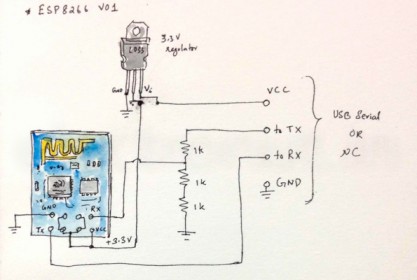 * ESP8266 V01
3.3V
regulator
LD33
GND
Vi
VCC
to TX
1k
to RX
1k
GND
1k
USB Serial
OR
GND
RX
TX
VCC
+3.3V